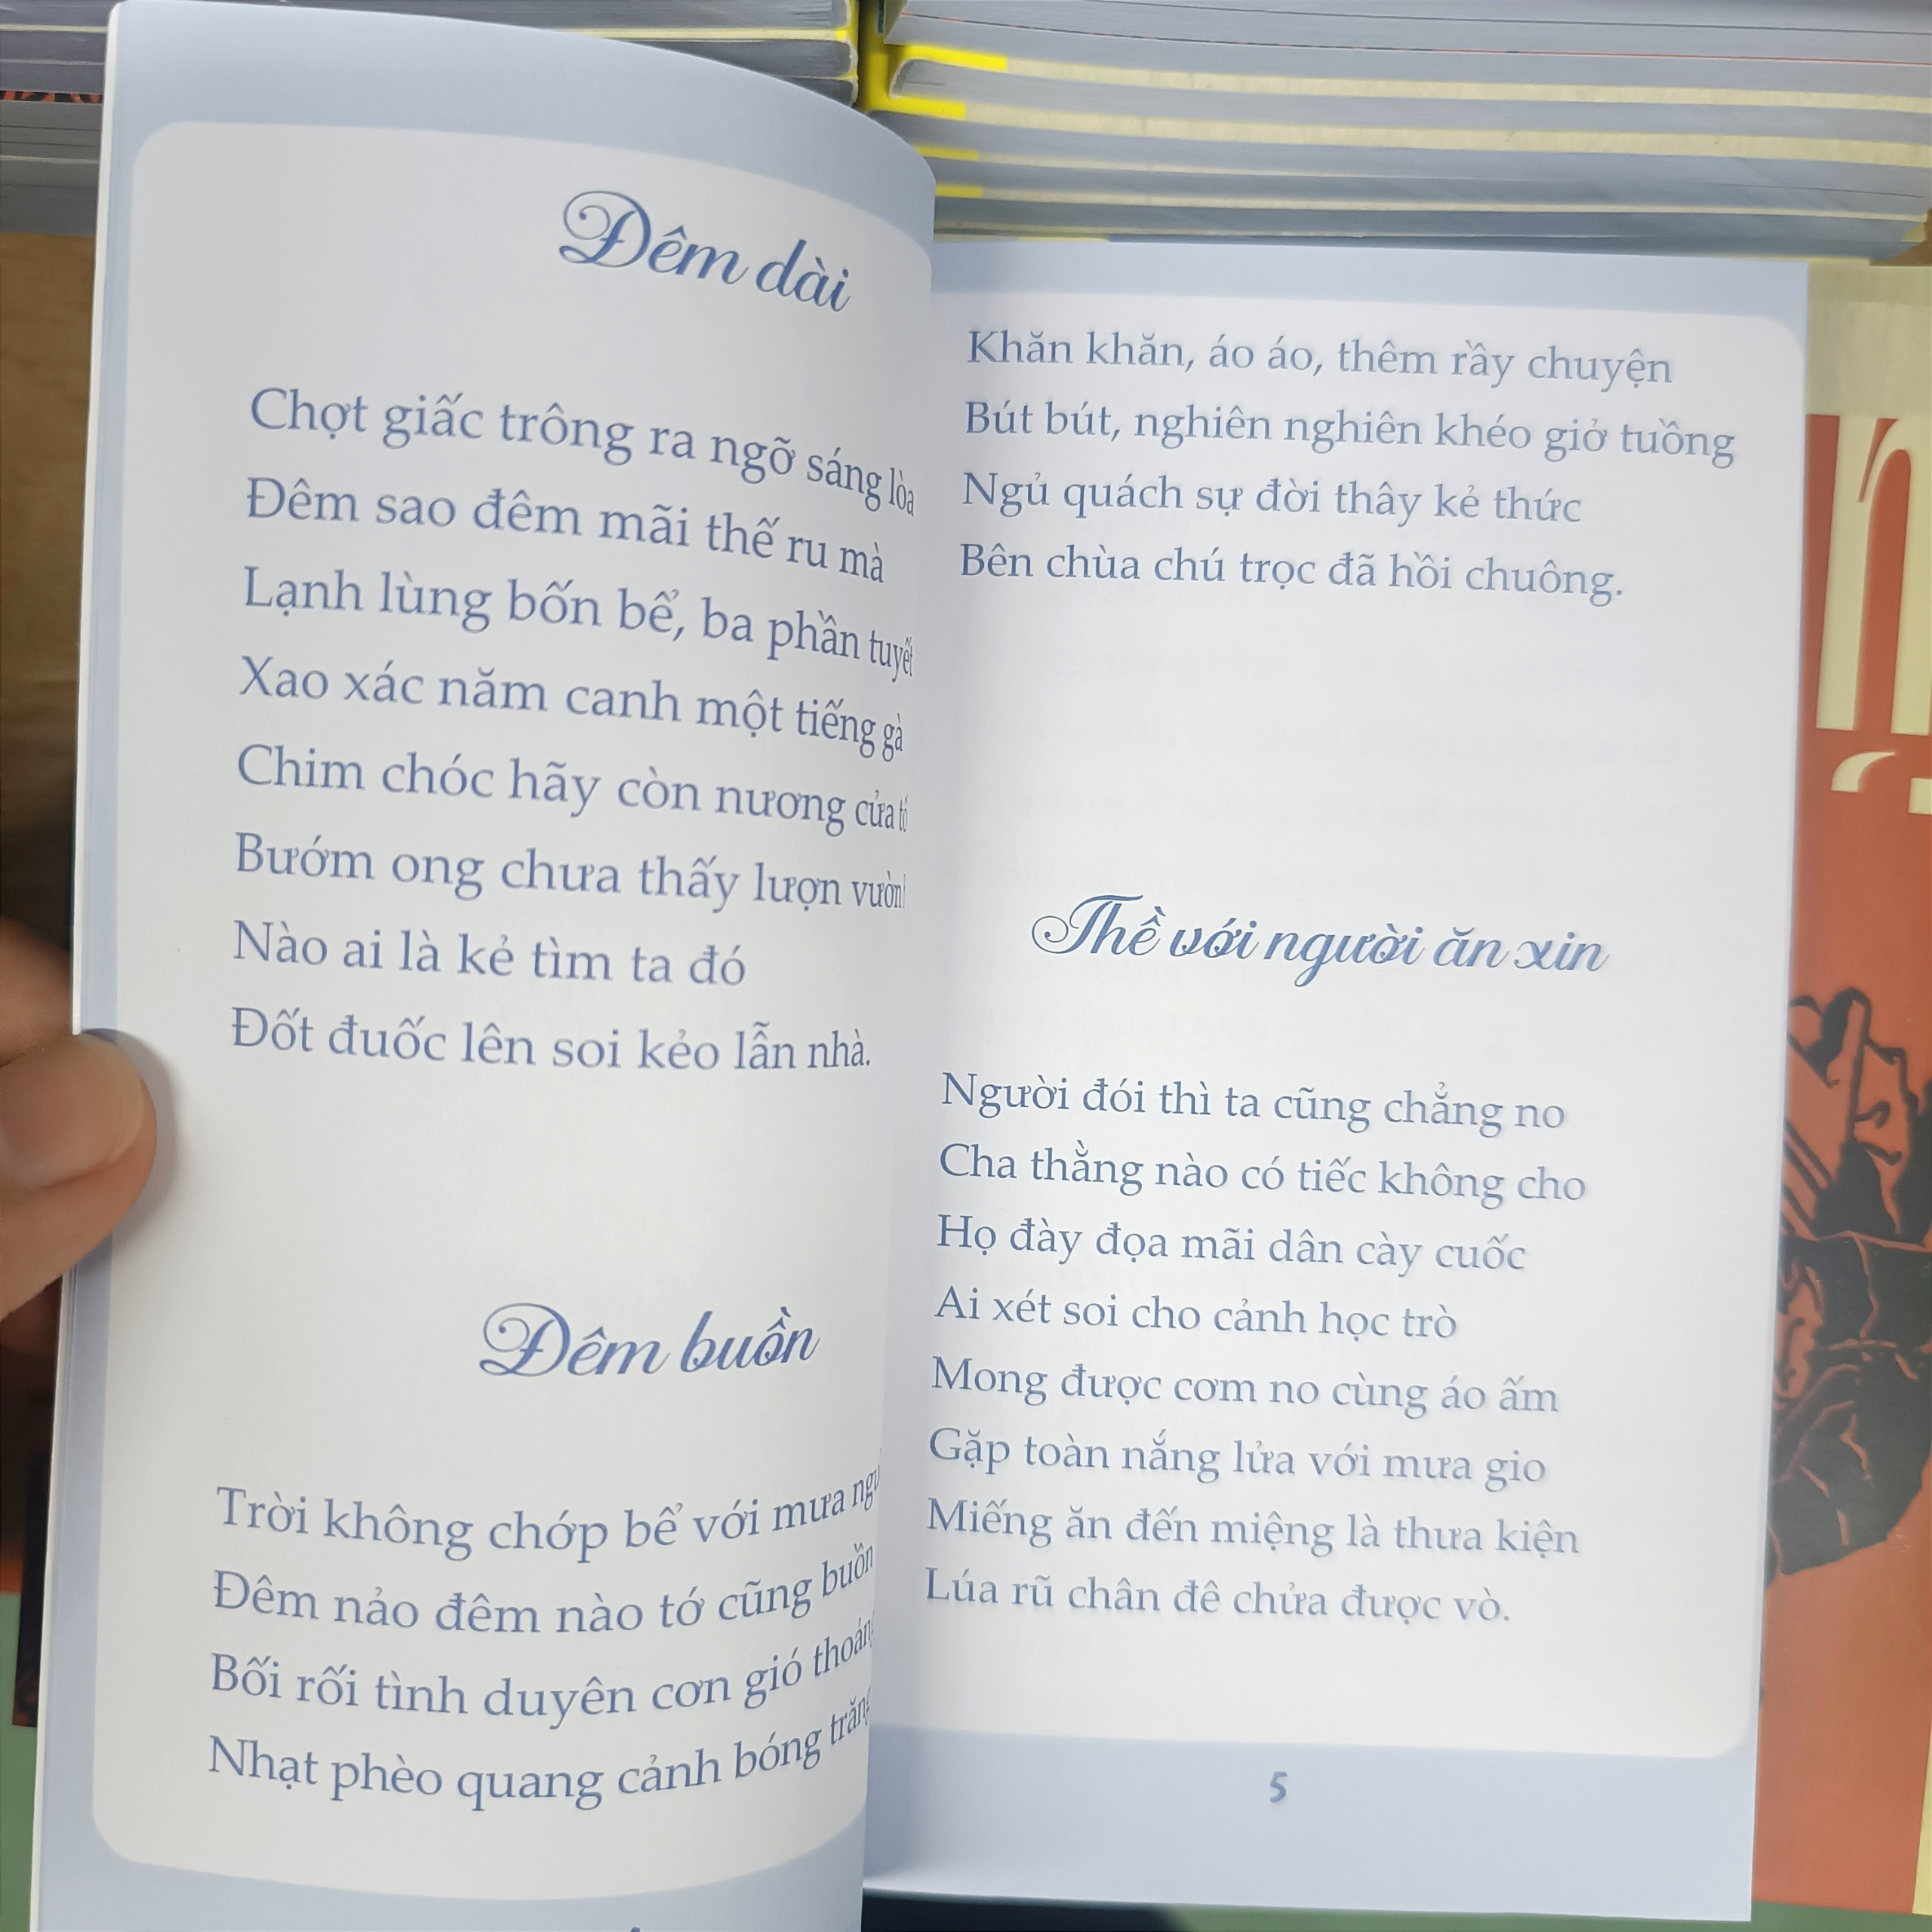 Đêm dài
Chợt giấc trông ra ngỡ sáng lòa
Đêm sao đêm mãi thế ru mà
Lạnh lùng bốn bể, ba phần tuyết
Xao xác năm canh một tiếng gà
Chim chóc hãy còn nương cửa
Bướm ong chưa thấy lượn vườn
Nào ai là kẻ tìm ta đó
Đốt đuốc lên soi kẻo lẫn nhà.
Đêm buồn
Trời không chớp bể với mưa
Đêm nảo đêm nào tớ cũng buồn
Bối rối tình duyên cơn gió
Nhạt phèo quang cảnh bóng
Khăn khăn, áo áo, thêm rầy chuyện
Bút bút, nghiên nghiên khéo giở tuồng
Ngủ quách sự đời thây kẻ thức
Bên chùa chú trọc đã hồi chuông.
Thề với người ăn xin
Người đói thì ta cũng chẳng no
Cha thằng nào có tiếc không cho
Họ đày đọa mãi dân cày cuốc
Ai xét soi cho cảnh học trò
Mong được cơm no cùng áo ấm
Gặp toàn nắng lửa với mưa gio
Miếng ăn đến miệng là thưa kiện
Lúa rũ chân đê chửa được vò.
5